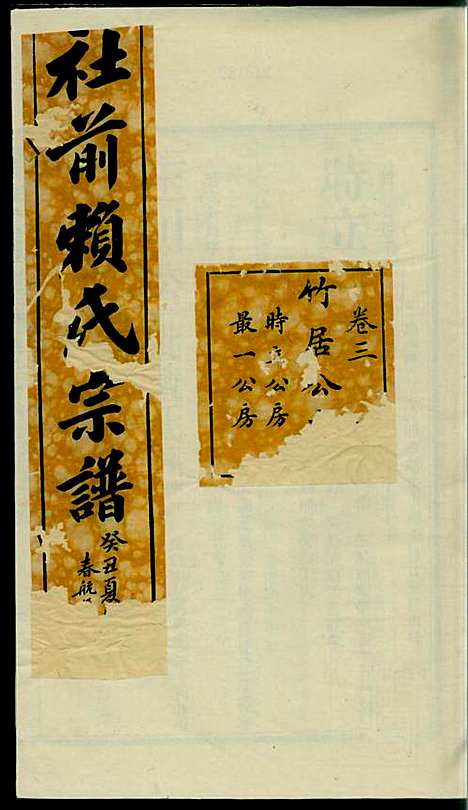 卷三
竹居公
時立公房
最一公房
社前賴氏宗譜
癸丑夏
春航